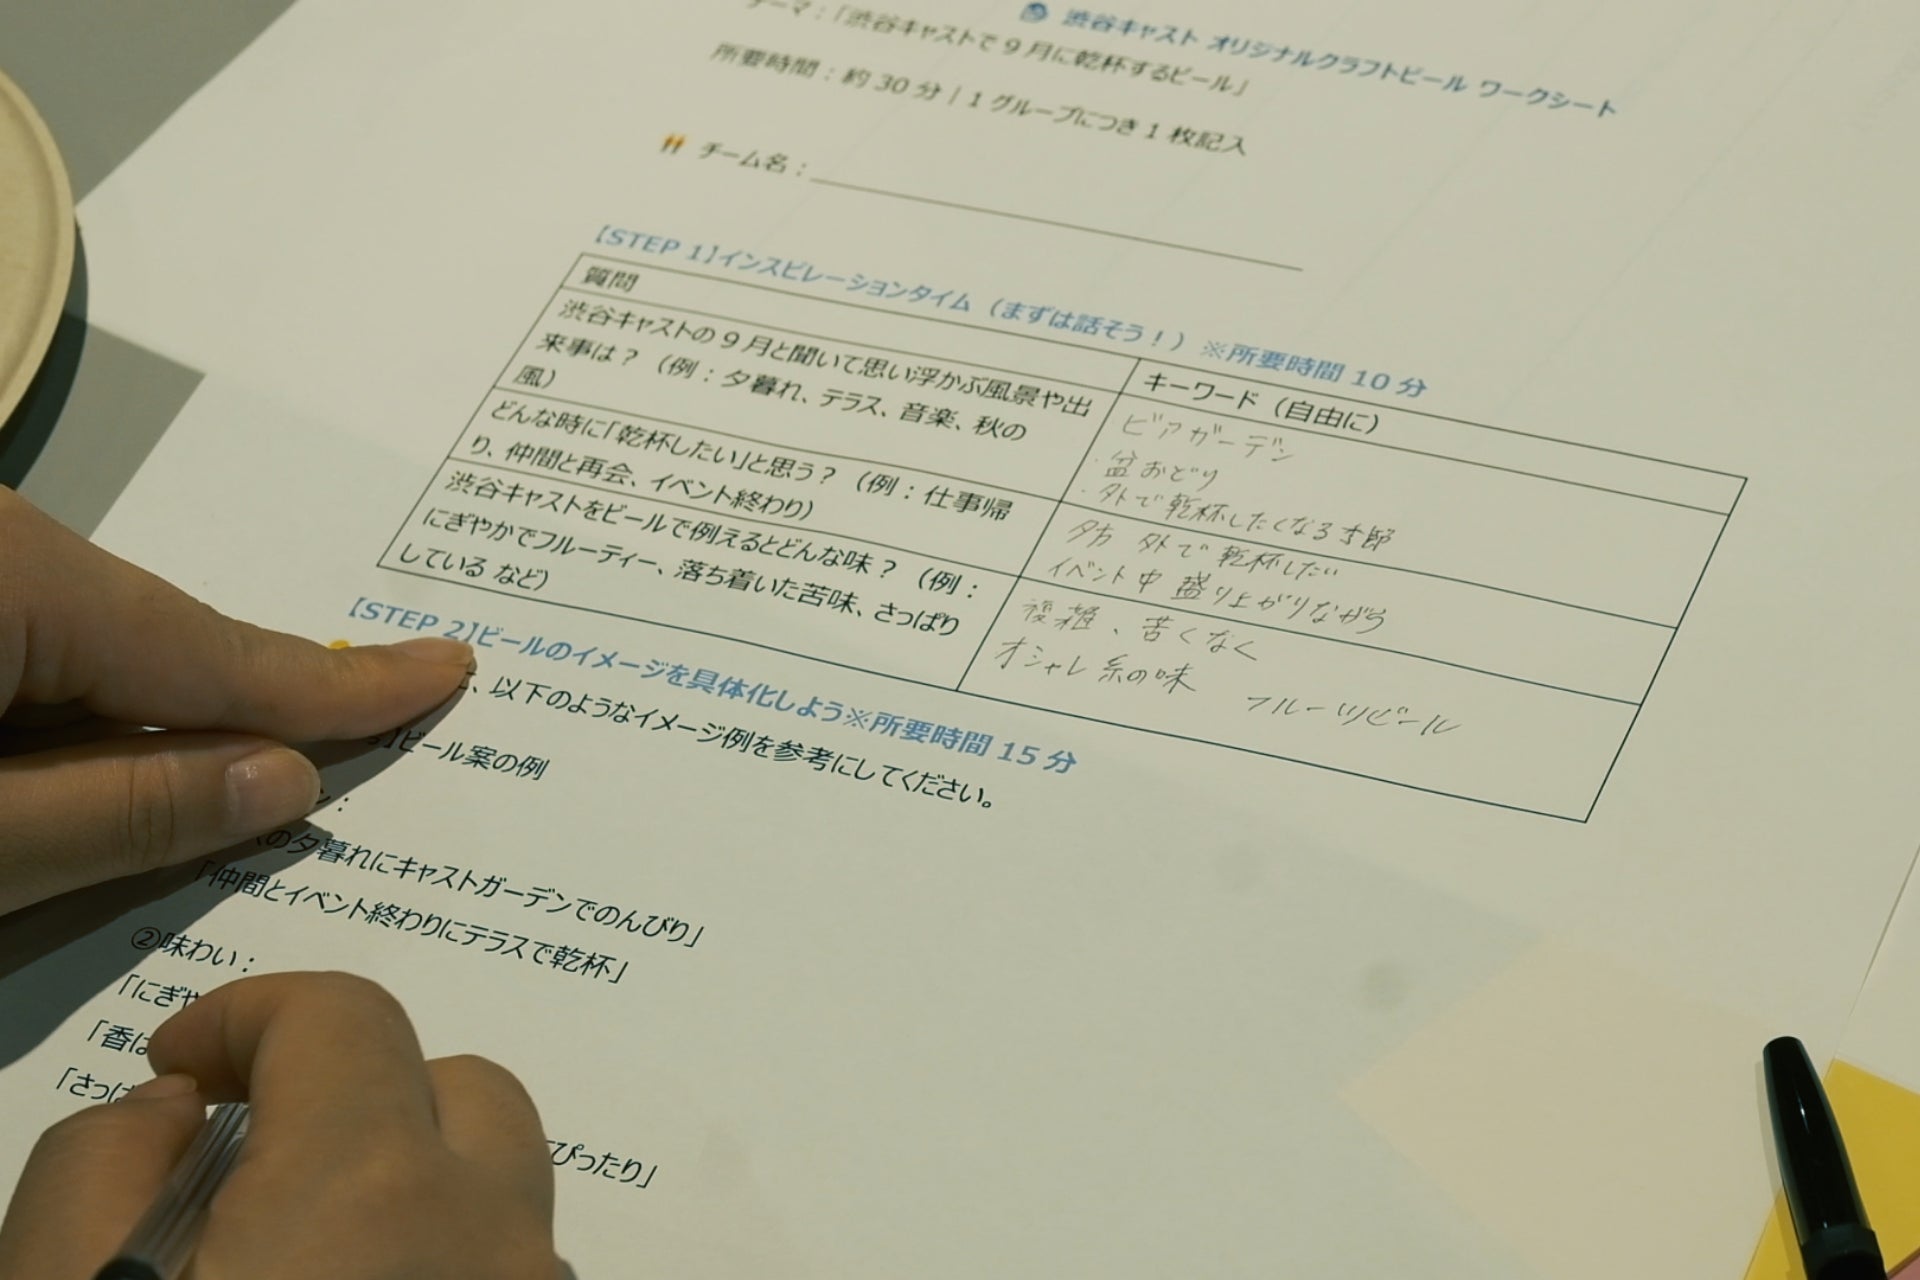 渋谷キャスト オリジナルクラフトビール ワークシート
テーマ：「渋谷キャストで9月に乾杯するビール」
所要時間：約30分 | 1グループにつき1枚記入
チーム名：
【STEP 1】インスピレーションタイム（まずは話そう！）※所要時間 10分
質問
キーワード（自由に）
渋谷キャストの9月と聞いて思い浮かぶ風景や出
来事は？（例：夕暮れ、テラス、音楽、秋の
風）
ビアガーデン
・盆おどり
・外で乾杯したくなる季節
どんな時に「乾杯したい」と思う？（例：仕事帰
り、仲間と再会、イベント終わり）
夕方 外で乾杯したい
イベント中 盛り上がりながら
渋谷キャストをビールで例えるとどんな味？（例：
にぎやかでフルーティー、落ち着いた苦味、さっぱり
している など）
複雑、苦くなく
オシャレ系の味 フルーツビール
【STEP 2】ビールのイメージを具体化しよう※所要時間 15分
、以下のようなイメージ例を参考にしてください。
】ビール案の例
ン：
の夕暮れにキャストガーデンでのんびり」
「仲間とイベント終わりにテラスで乾杯」
②味わい：
「にぎや
「香は
「さっぱ
ぴったり」